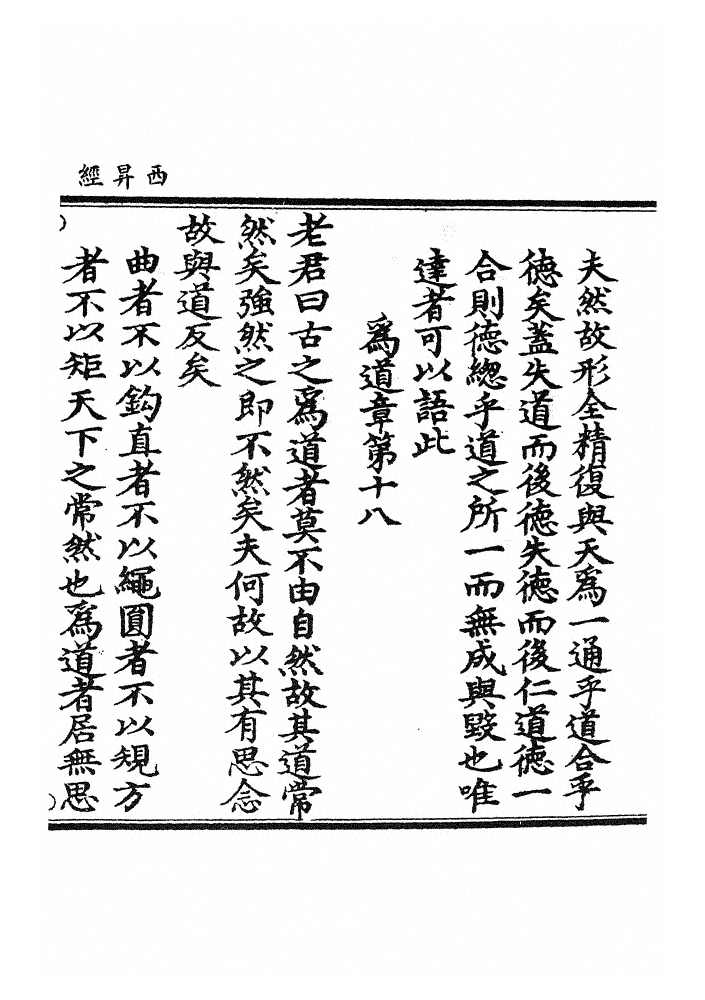 西昇經
夫然故形全精復與天爲一通乎道合乎
德矣蓋失道而後德失德而後仁道德一
合則德緫乎道之所一而無成與毀也唯
達者可以語此
爲道章第十八
老君曰古之爲道者莫不由自然故其道常
然矣強然之即不然矣夫何故以其有思念
故與道反矣
曲者不以鈎直者不以繩圓者不以規方
者不以矩天下之常然也爲道者居無思